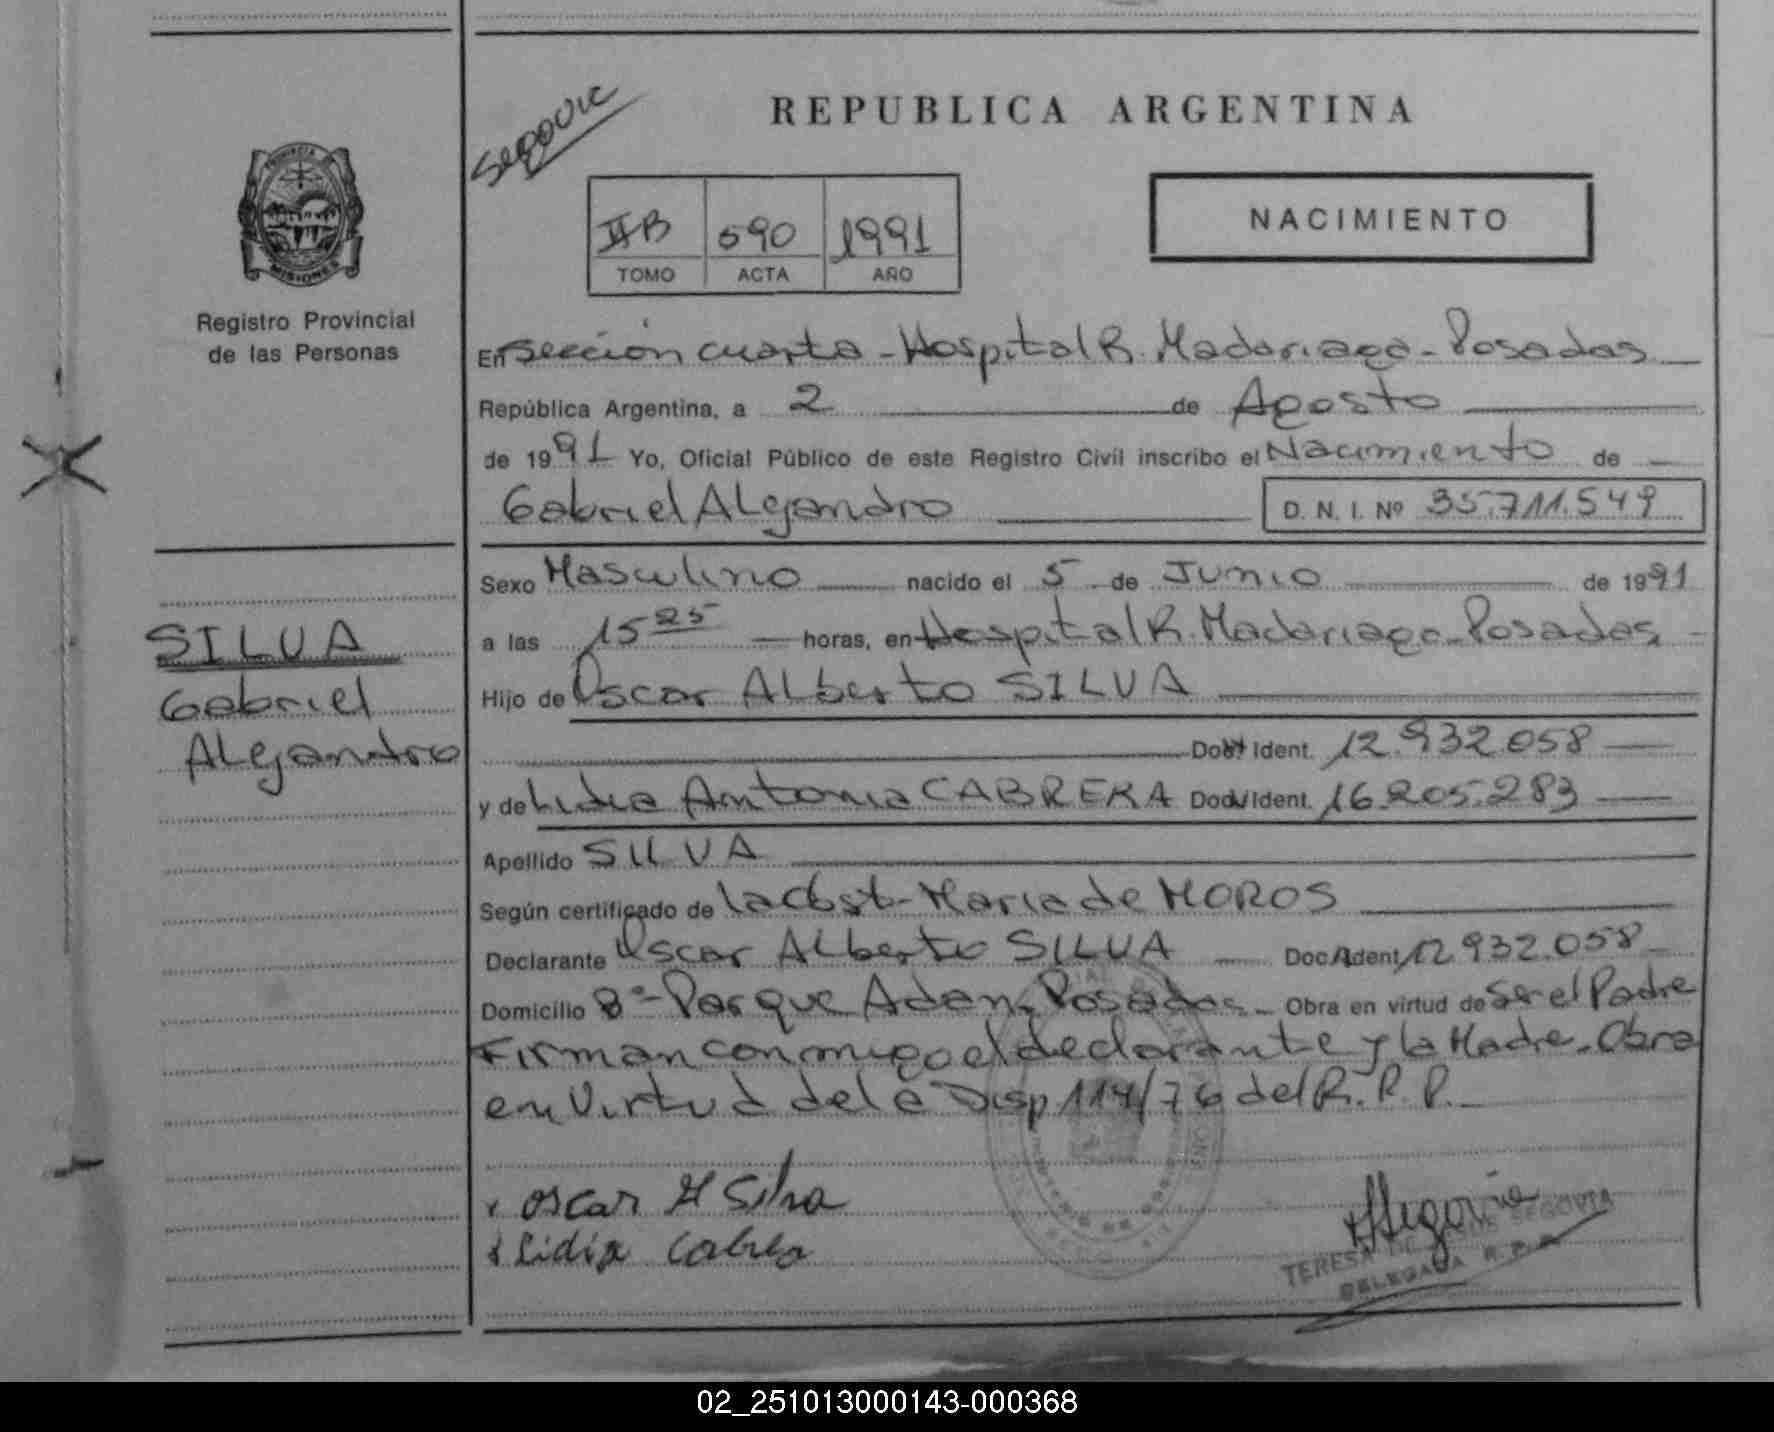 Segovia
REPUBLICA ARGENTINA
PROVINCIA DE
MISIONES
Registro Provincial
de las Personas
II B 590 1991
TOMO ACTA AÑO
NACIMIENTO
En Sección cuarta - Hospital R. Madariaga - Posadas
República Argentina, a 2 de Agosto
de 1991 Yo, Oficial Público de este Registro Civil inscribo el Nacimiento de
Gabriel Alejandro D. N. I. Nº 35.711.549
SILVA
Gabriel
Alejandro
Sexo Masculino nacido el 5 de Junio de 1991
a las 15 25 horas, en Hospital R. Madariaga - Posadas
Hijo de Oscar Alberto SILVA
Doc. Ident. 12.932.058
y de Lidia Antonia CABRERA Doc. Ident. 16.205.283
Apellido SILVA
Según certificado de la Obst. Maria de MOROS
Declarante Oscar Alberto SILVA Doc. Ident. 12.932.058
Domicilio Bº - Parque Adam, Posadas - Obra en virtud de Ser el Padre
Firman conmigo el declarante y la Madre - Obra
en Virtud de la Disp 114/76 del R. P. P.
Oscar A Silva
Lidia Cabrera
Segovia
TERESA DE JESUS SEGOVIA
DELEGADA R. P. P.
02_251013000143-000368